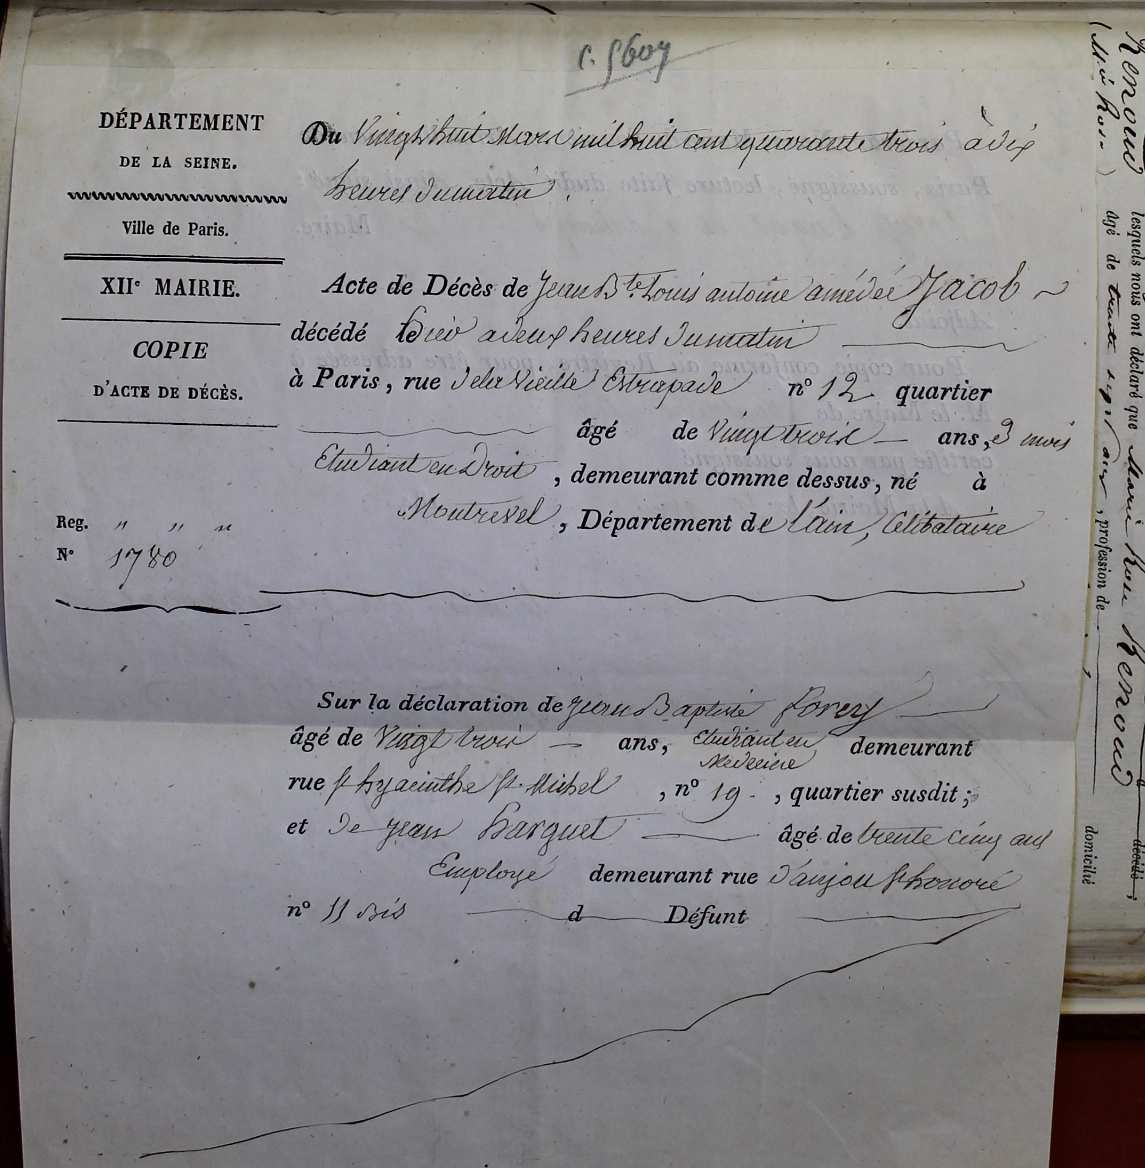 DÉPARTEMENT
DE LA SEINE.
Ville de Paris.
XIIe MAIRIE.
COPIE
D'ACTE DE DÉCÈS.
Reg. " " "
N° 1780
Du Vingt huit Mars mil huit cent quarante trois à dix
heures du matin.
Acte de Décès de Jean Bte Louis antoine amédée Jacob
décédé hier a deux heures du matin
à Paris, rue de la Vieille Estrapade n° 12 quartier
âgé de Vingt trois ans, 3 mois
Etudiant en Droit, demeurant comme dessus, né à
Montrevel, Département de l'ain, Célibataire
Sur la déclaration de Jean Baptiste Forey
âgé de Vingt trois ans, Etudiant en demeurant
Médecine
rue St hyacinthe St Michel, n° 19, quartier susdit;
et de Jean âgé de trente cinq ans
Employé demeurant rue d'anjou St honoré
n° 11 bis d Défunt
Renoud
lesquels nous ont déclaré que Marie Rose Renoud
âgé de trente ans, profession de
décédé;
domicilié